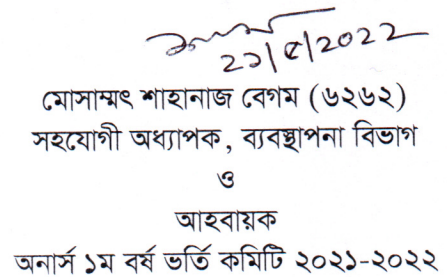 ২১/৫/২০২২
মোসাম্মৎ শাহানাজ বেগম (৬২৬২)
সহযোগী অধ্যাপক, ব্যবস্থাপনা বিভাগ
ও
আহবায়ক
অনার্স ১ম বর্ষ ভর্তি কমিটি ২০২১-২০২২